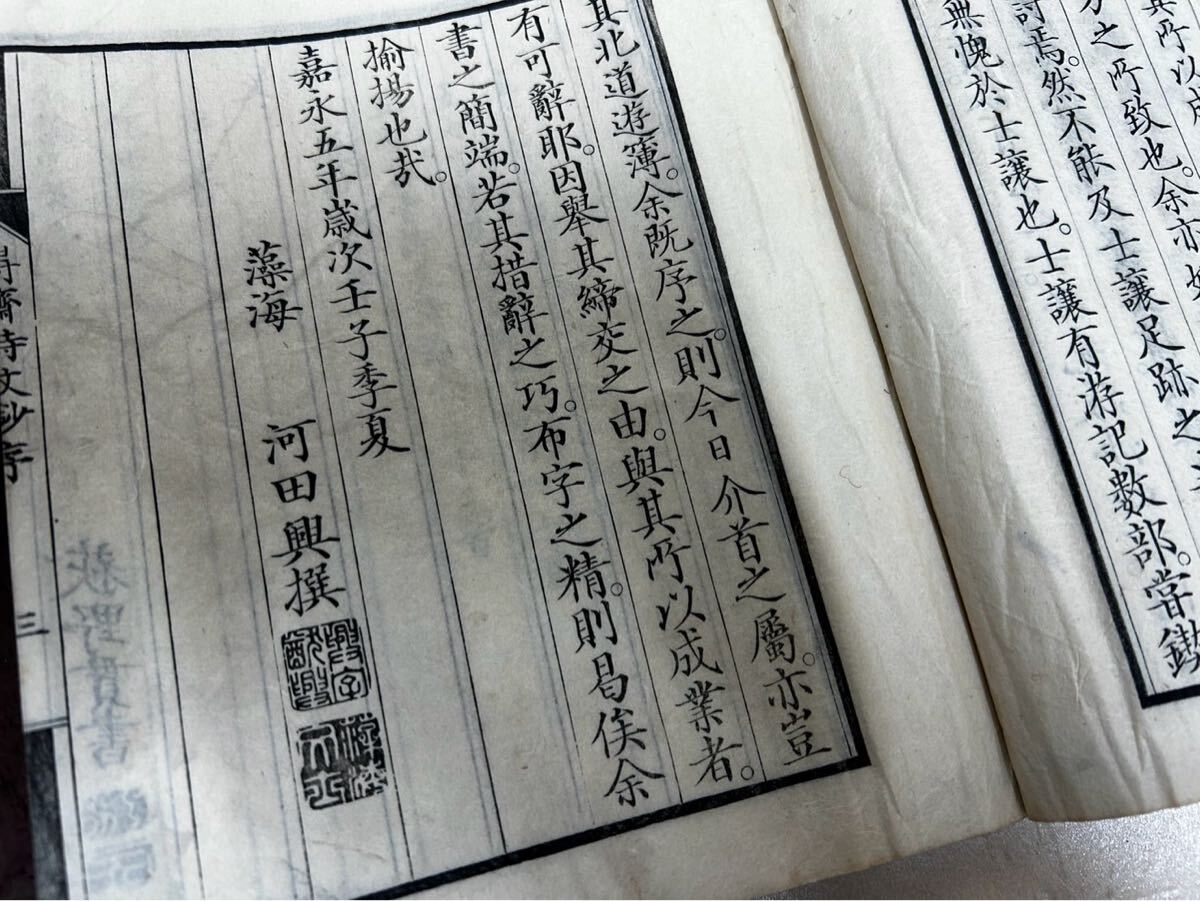 其所以成
之所致也。余亦
討焉。然不能及士讓足跡之
無愧於士讓也。士讓有游記數部。嘗鐫
其北道遊簿。余既序之。則今日介首之屬。亦豈
有可辭耶。因舉其締交之由。與其所以成業者。
書之簡端。若其措辭之巧。布字之精。則曷俟余
揄揚也哉。
嘉永五年歲次壬子季夏
藻海 河田興撰
得齋詩文鈔序
三